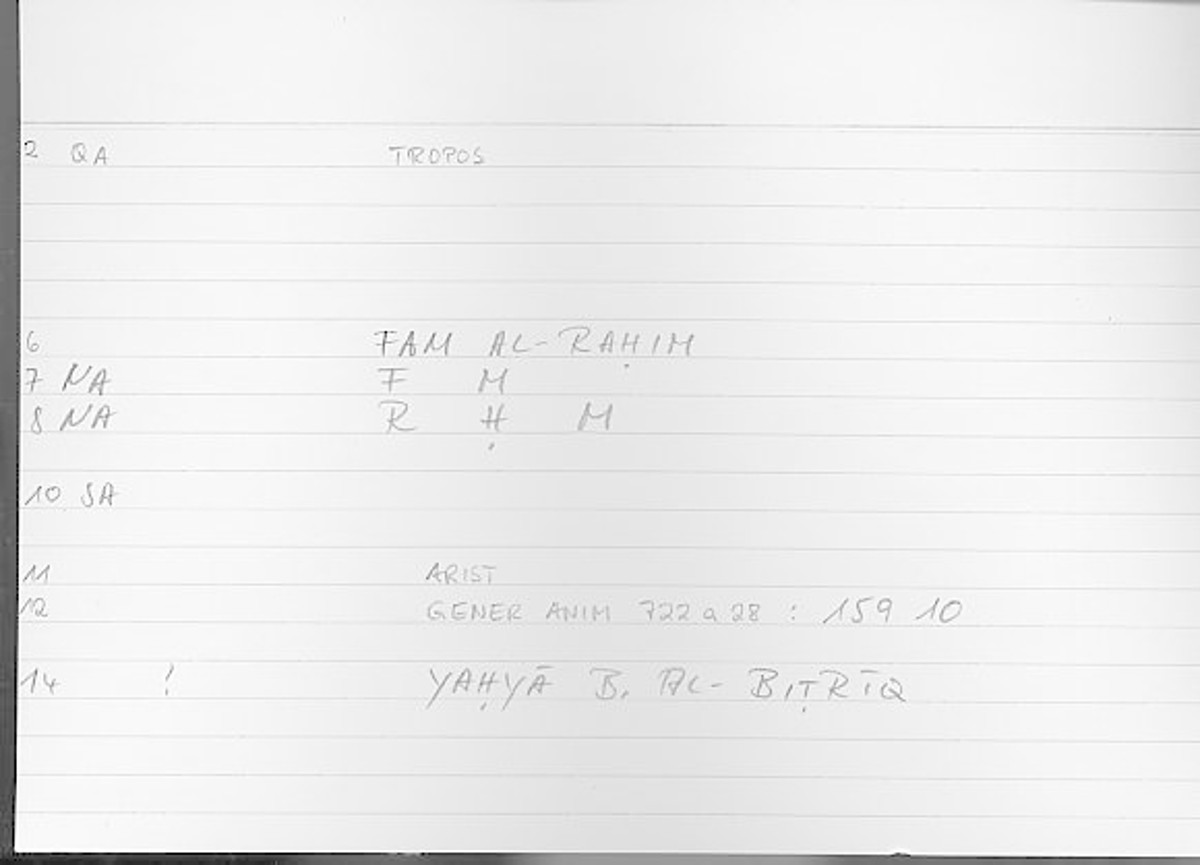 2 QA TROPOS
6 FAM AL-RAḤIM
7 NA F M
8 NA R Ḥ M
10 SA
11 ARIST
12 GENER ANIM 722 a 28 : 159 10
14 ! YAḤYĀ B. AL-BIṬRĪQ